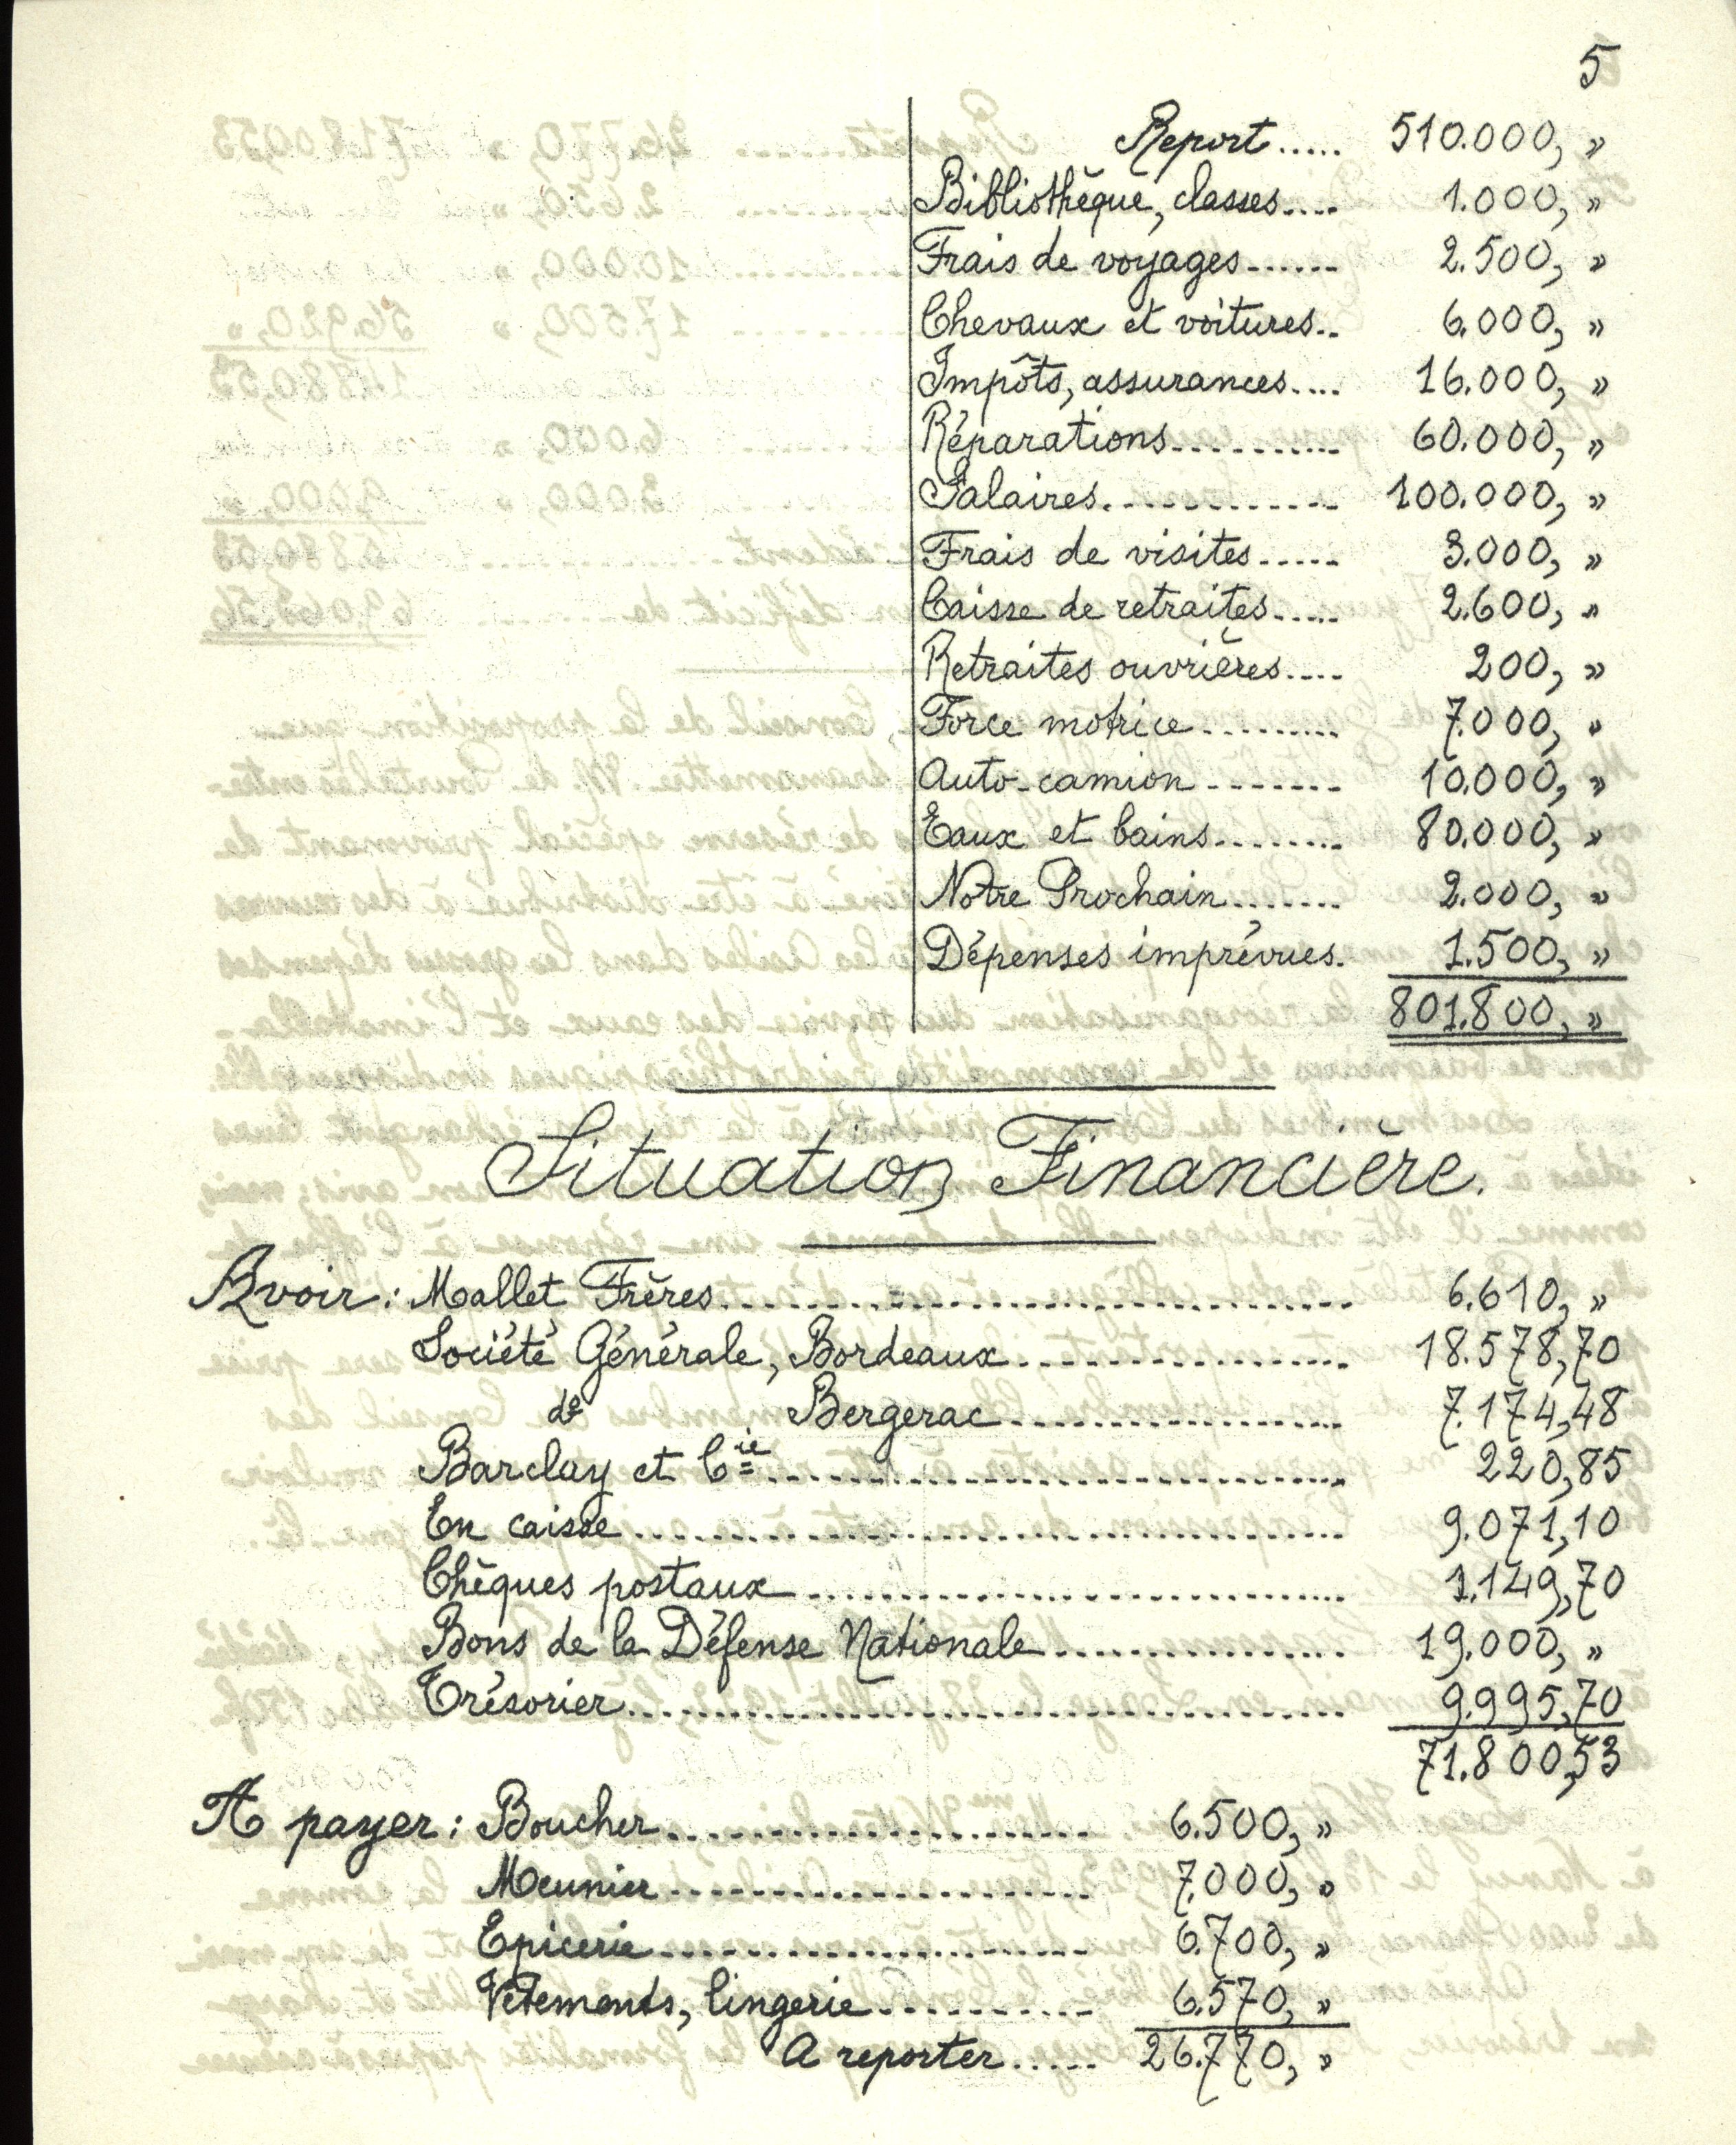 5
Report..... 510.000, »
Bibliothèque, classes.... 1.000, »
Frais de voyages...... 2.500, »
Chevaux et voitures.. 6.000, »
Impôts, assurances.... 16.000, »
Réparations.......... 60.000, »
Salaires............. 100.000, »
Frais de visites..... 3.000, »
Caisse de retraites..... 2.600, »
Retraites ouvrières.... 200, »
Force motrice......... 7.000, »
Auto-camion....... 10.000, »
Eaux et bains........ 80.000, »
Notre Prochain....... 2.000, »
Dépenses imprévues. 1.500, »
801.800, »
Situation Financière.
Avoir: Mallet Frères.................................. 6.610, »
Société Générale, Bordeaux................. 18.578,70
dº Bergerac................. 7.174,48
Barclay et Cie............................... 220,85
En caisse..................................... 9.071,10
Chèques postaux............................ 1.149,70
Bons de la Défense Nationale............... 19.000, »
Trésorier..................................... 9.995,70
71.800,53
A payer: Boucher........................ 6.500, »
Meunier........................ 7.000, »
Epicerie........................ 6.700, »
Vêtements, lingerie........... 6.570, »
A reporter..... 26.770, »